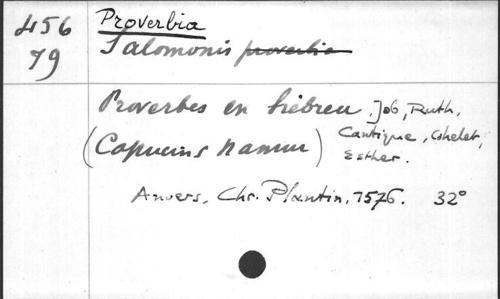 456
79
Proverbia
Salomonis proverbia
Proverbes en hébreu, Job, Ruth,
Cantique, Cohelet,
(Capucins Namur) Esther.
Anvers, Chr. Plantin, 1576. 32°